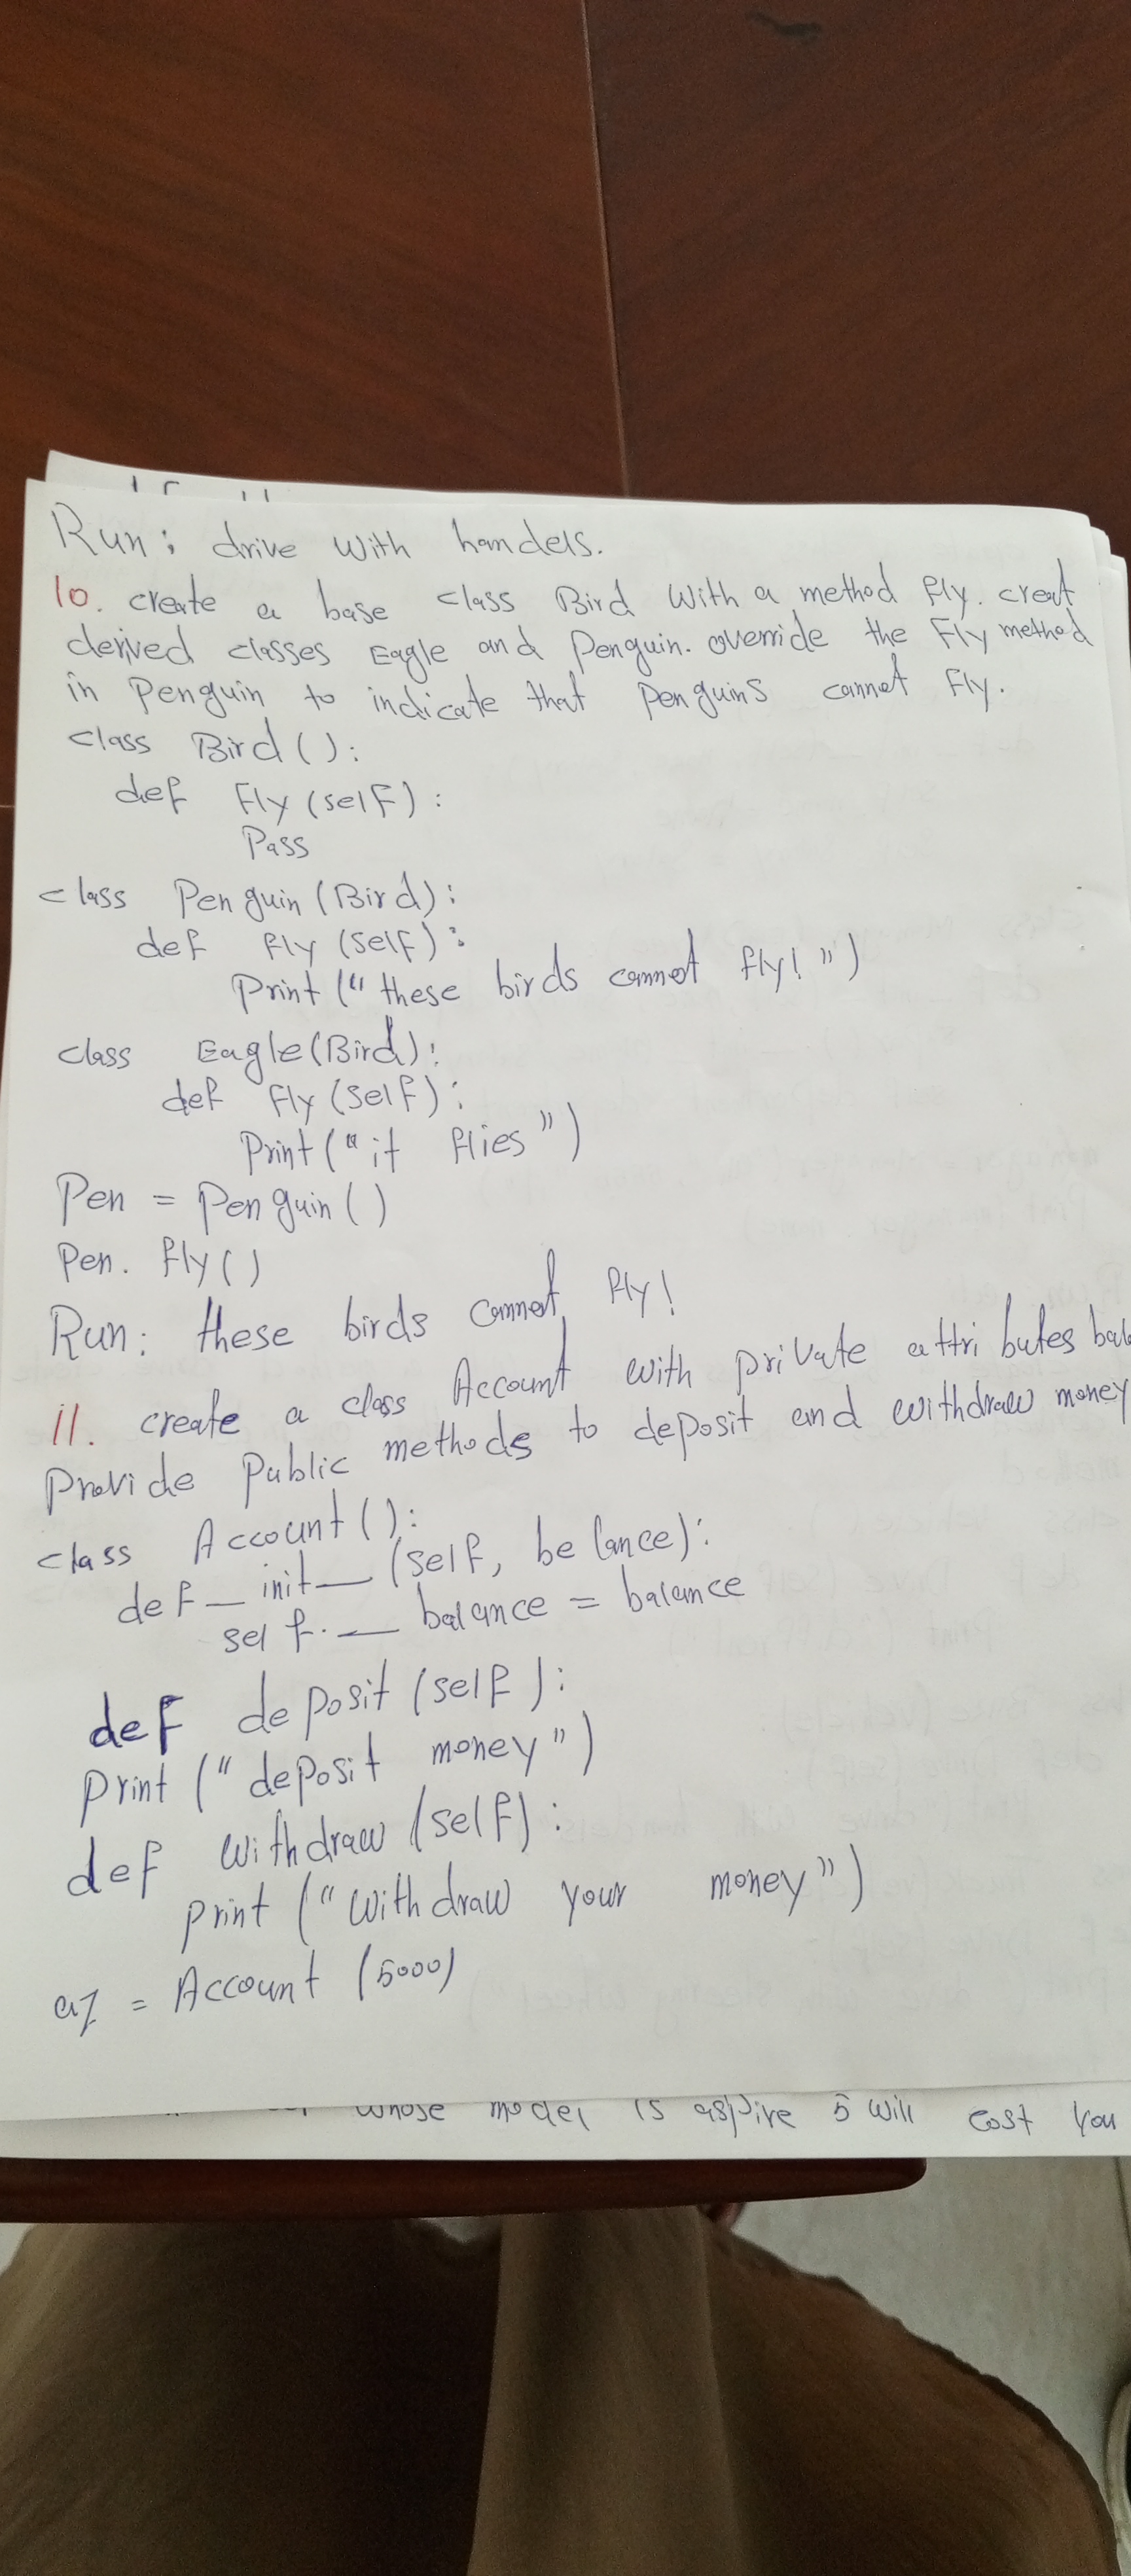 Run: drive with handels.
10. create a base class Bird with a method fly. creat
derived classes Eagle and Penguin. override the Fly method
in Penguin to indicate that penguins cannot Fly.
class Bird():
def Fly(self):
Pass
class Penguin(Bird):
def fly(self):
Print("these birds cannot fly!")
class Eagle(Bird):
def fly(self):
Print("it flies")
Pen = Penguin()
Pen. fly()
Run: these birds cannot fly!
11. create a class Account with private attributes bal
Provide Public methods to deposit and withdraw money
class Account():
def __init__(self, belance):
self.__balance = balance
def deposit(self):
Print("deposit money")
def withdraw(self):
print("withdraw your money")
az = Account(5000)
whose model is aspire 5 will cost you